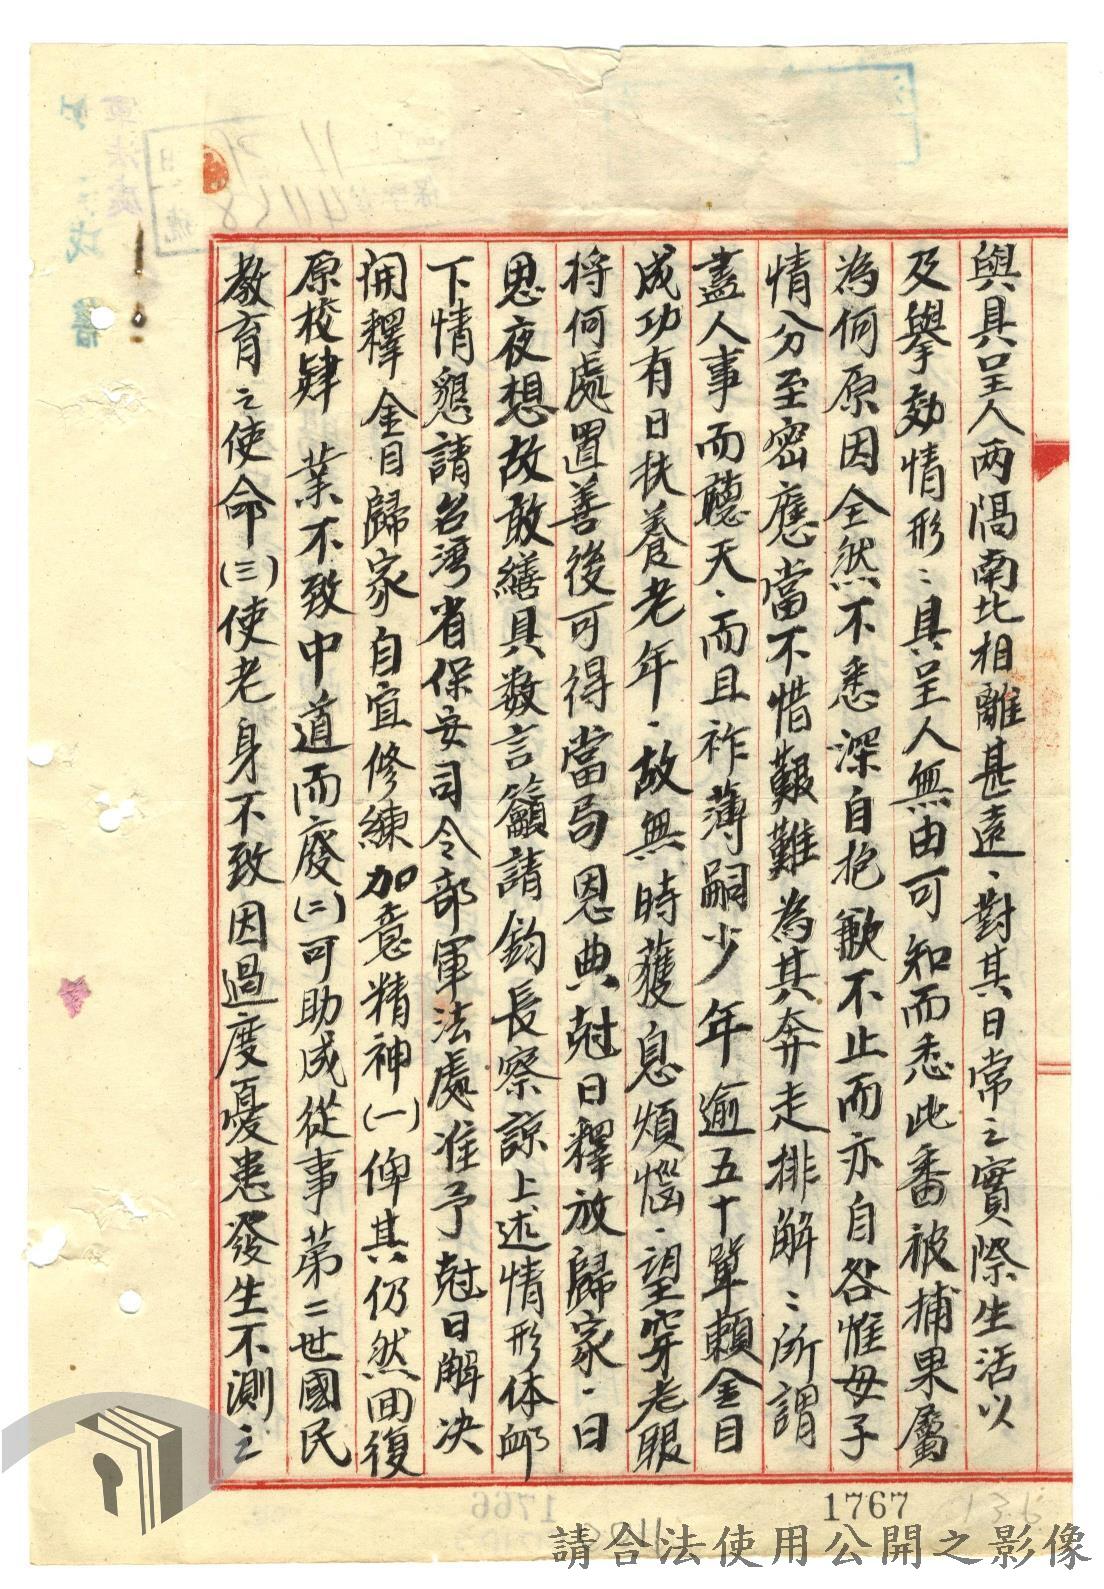 與具呈人兩隔南北相離甚遠、對其日常之實際生活以
及舉動情形：具呈人無由可知而悉此番被捕果屬
為何原因全然不悉深自抱歉不止而亦自咎惟母子
情分至密應當不惜艱難為其奔走排解：所謂
盡人事而聽天、而且祚薄嗣少年逾五十單賴金目
成功有日扶養老年、故無時獲息煩惱、望穿老眼
將何處置善後可得當局恩典尅日釋放歸家、日
思夜想故敢繕具數言籲請鈞長察諒上述情形体邺
下情懇請台灣省保安司令部軍法處准予尅日解决
開釋金目歸家自宜修練加意精神(一)俾其仍然回復
原校肄　業不致中道而廢(二)可助成從事第二世國民
教育之使命(三)使老身不致因過度憂患發生不測之
1767
1766
軍法處
請合法使用公開之影像